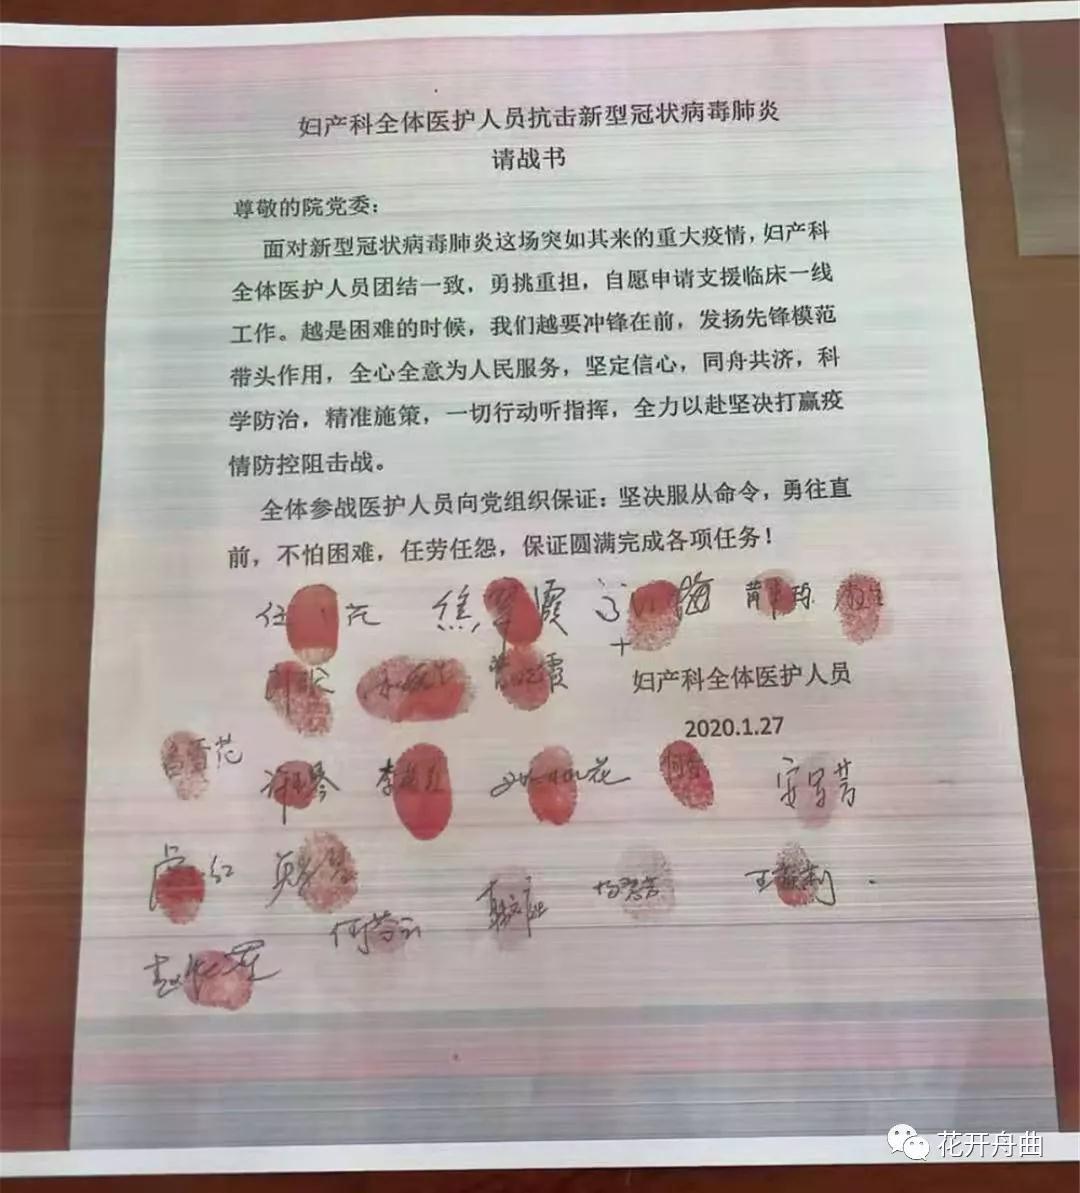 妇产科全体医护人员抗击新型冠状病毒肺炎
请战书
尊敬的院党委：
面对新型冠状病毒肺炎这场突如其来的重大疫情，妇产科
全体医护人员团结一致，勇挑重担，自愿申请支援临床一线
工作。越是困难的时候，我们越要冲锋在前，发扬先锋模范
带头作用，全心全意为人民服务，坚定信心，同舟共济，科
学防治，精准施策，一切行动听指挥，全力以赴坚决打赢疫
情防控阻击战。
全体参战医护人员向党组织保证：坚决服从命令，勇往直
前，不怕困难，任劳任怨，保证圆满完成各项任务！
妇产科全体医护人员
2020.1.27
何芳云
花开舟曲